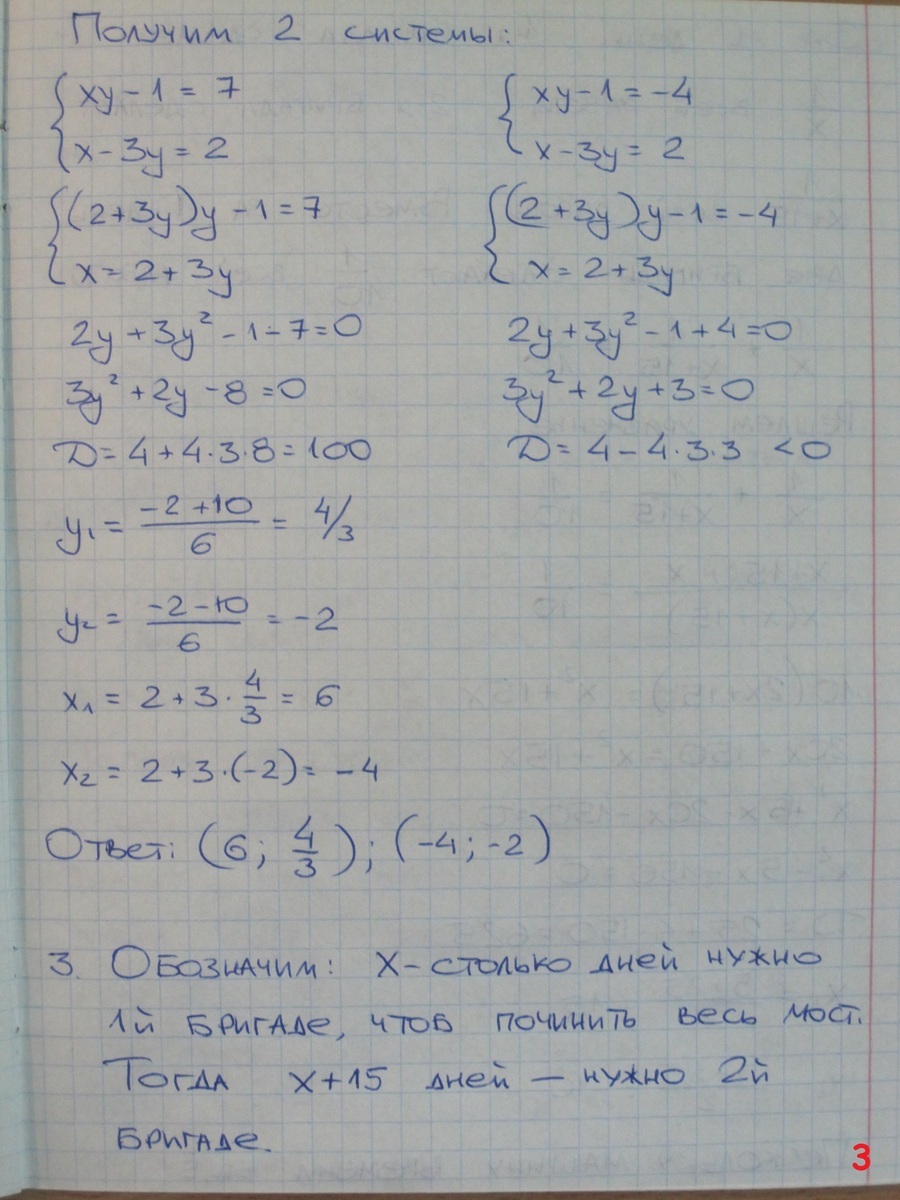 Получим 2 системы:
{ xy - 1 = 7    { xy - 1 = -4
{ x - 3y = 2    { x - 3y = 2
{ (2+3y)y - 1 = 7    { (2+3y)y - 1 = -4
{ x = 2 + 3y    { x = 2 + 3y
2y + 3y² - 1 - 7 = 0    2y + 3y² - 1 + 4 = 0
3y² + 2y - 8 = 0    3y² + 2y + 3 = 0
D = 4 + 4·3·8 = 100    D = 4 - 4·3·3 < 0
y₁ = (-2+10)/6 = 4/3
y₂ = (-2-10)/6 = -2
x₁ = 2 + 3 · 4/3 = 6
x₂ = 2 + 3·(-2) = -4
Ответ: (6; 4/3); (-4; -2)
3. Обозначим: х - столько дней нужно
1й бригаде, чтоб починить весь мост.
Тогда х+15 дней — нужно 2й
бригаде.
3